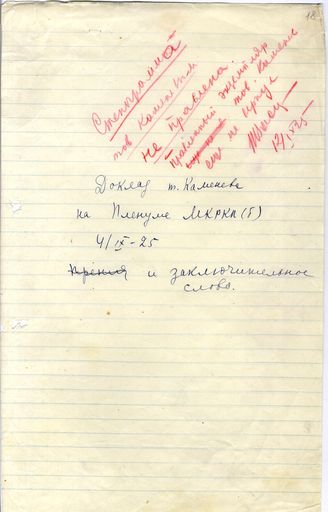 18
Стенограмма
тов Каменевым
не правлена.
Правленный экземпляр
тов. Каменев
еще не вернул
12/IX 25
Доклад т. Каменева
на Пленуме МКРКП(б)
4/IX-25
Прения и заключительное
слово.